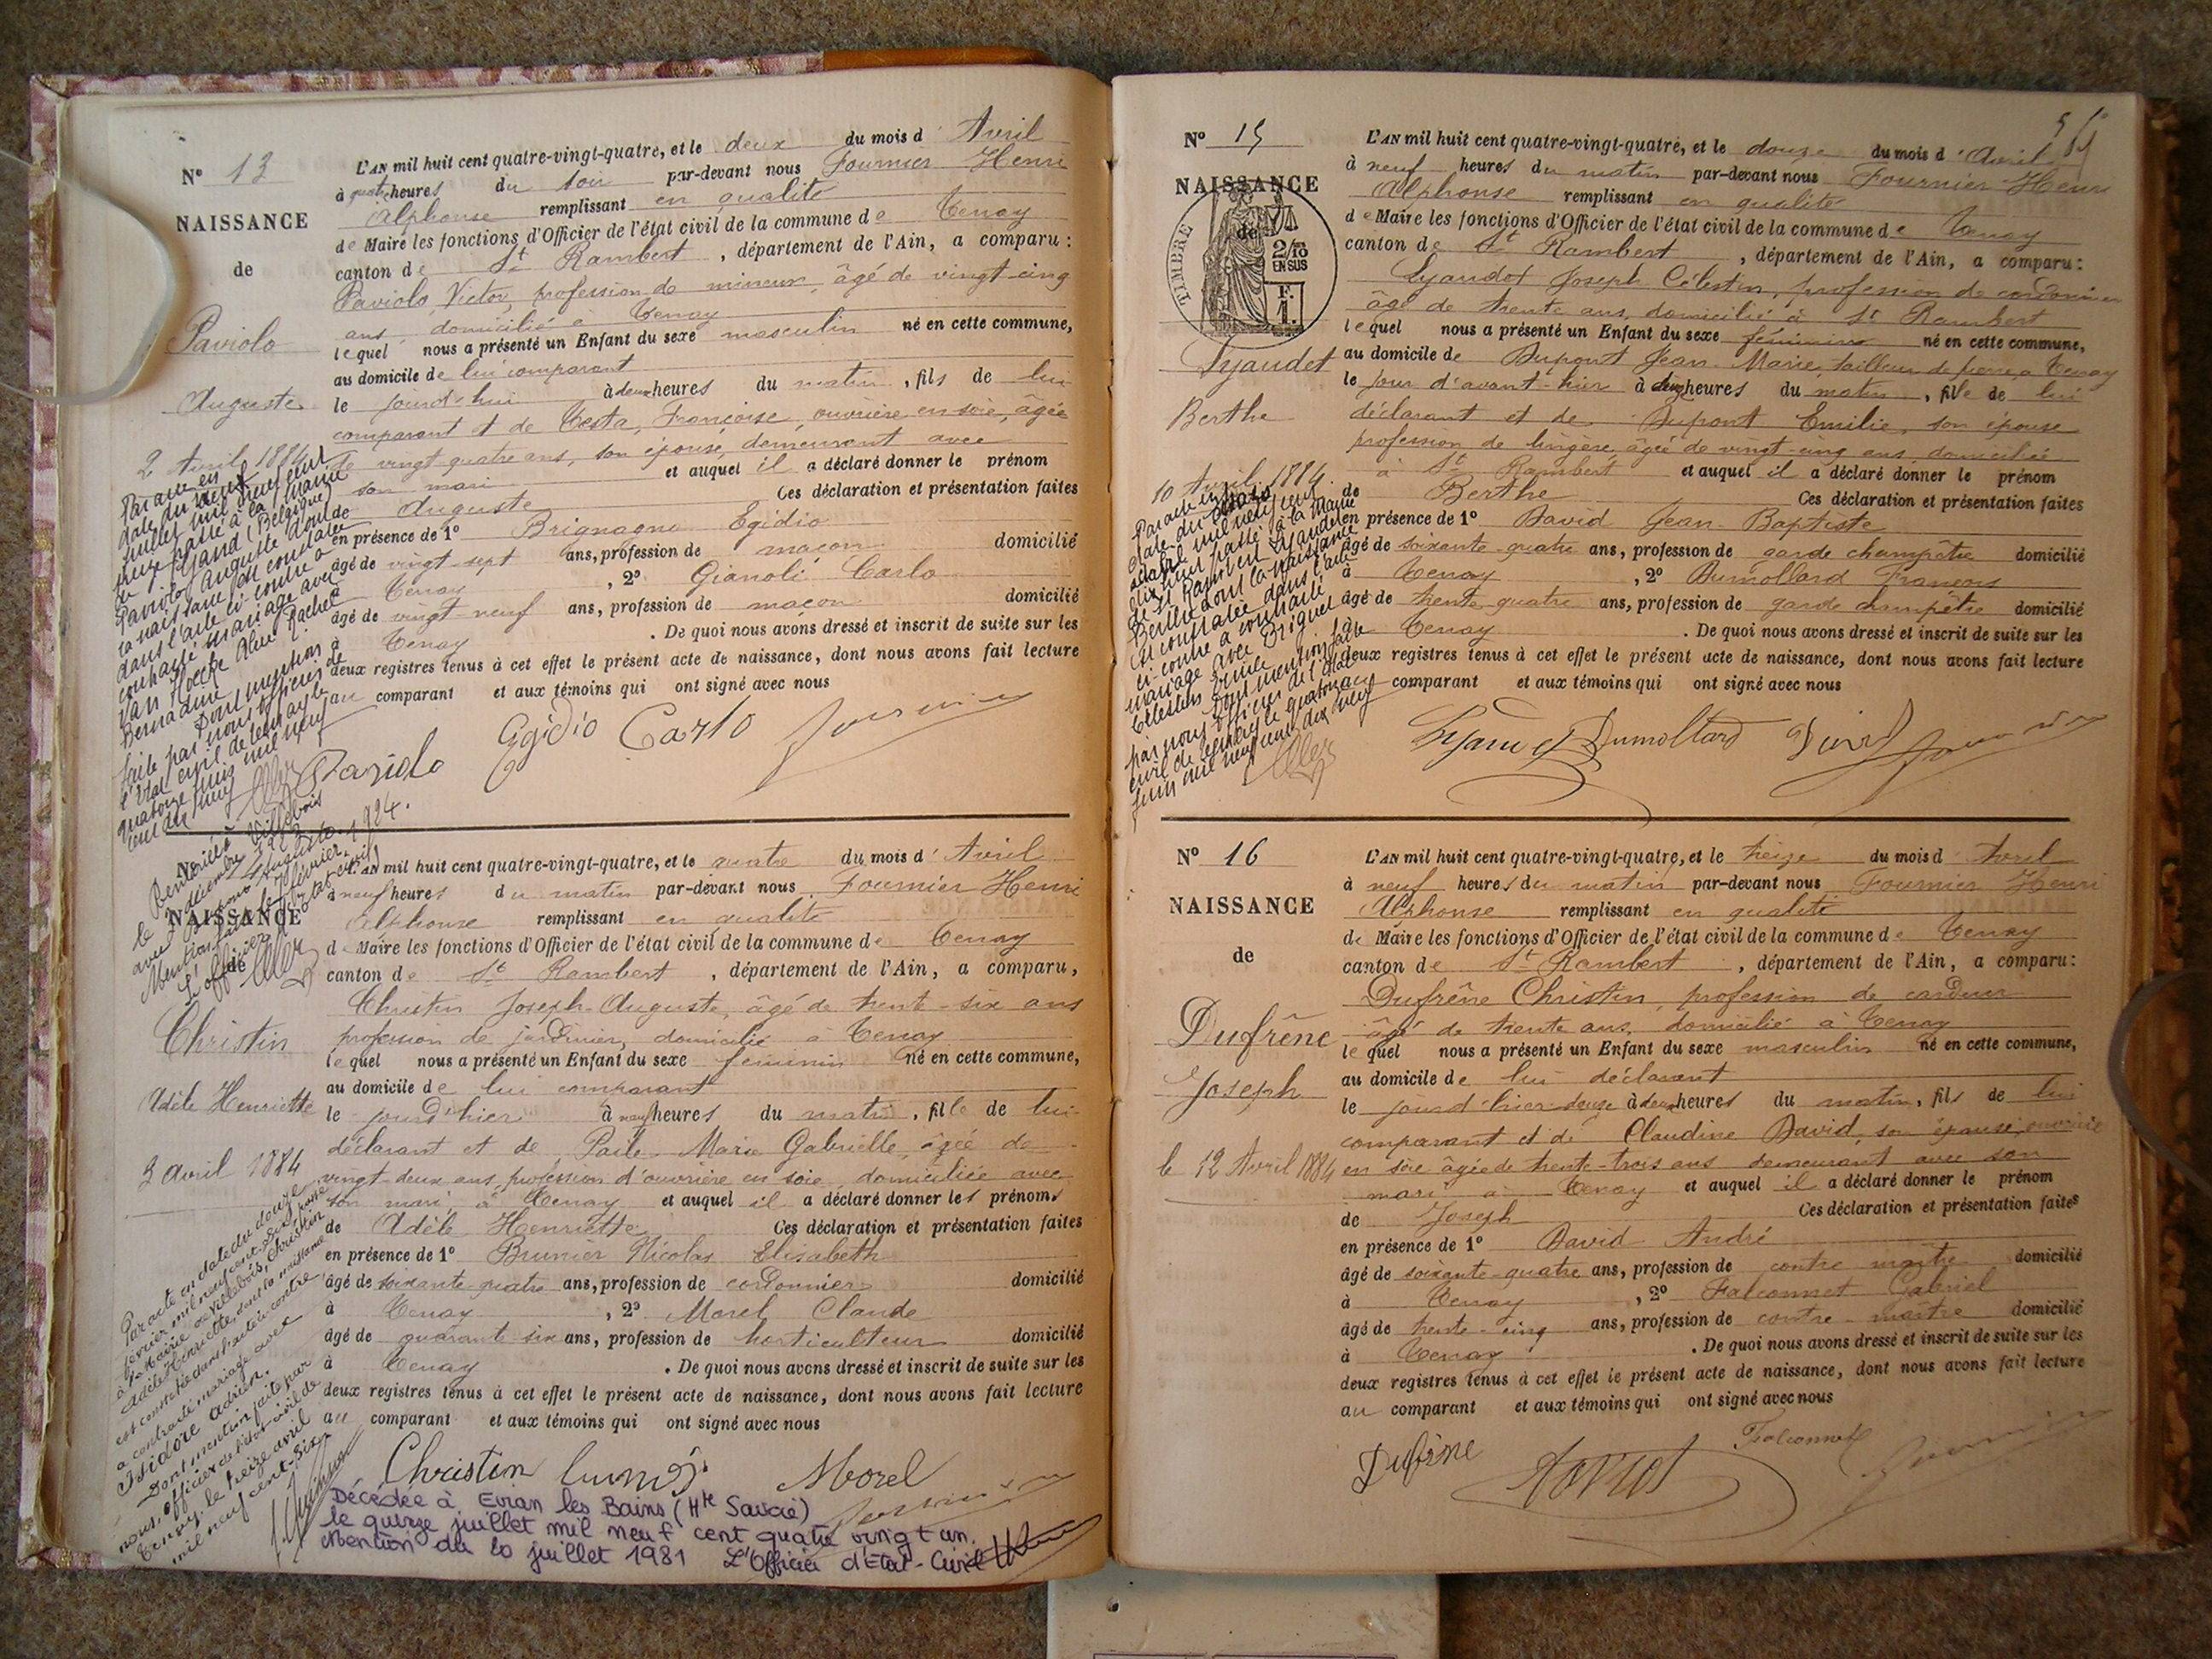 Nº 13
NAISSANCE
de
Paviolo
Auguste
2 Avril 1884
L'AN mil huit cent quatre-vingt-quatre, et le deux du mois d'Avril
à quatre heures du soir par-devant nous Fournier Henri
Alphonse remplissant en qualité
de Maire les fonctions d'Officier de l'état civil de la commune de Tenay
canton de St Rambert, département de l'Ain, a comparu:
Paviolo, Victor, profession de mineur, âgé de vingt-cinq
ans domicilié à Tenay
lequel nous a présenté un Enfant du sexe masculin né en cette commune,
au domicile de lui comparant
le jourd'hui à deux heures du matin, fils de lui
comparant et de Testa, Françoise, ouvrière en soie, âgée
de vingt quatre ans, son épouse, demeurant avec
son mari et auquel il a déclaré donner le prénom
Auguste Ces déclaration et présentation faites
en présence de 1º Brignagno Egidio
âgé de vingt-sept ans, profession de maçon domicilié
à Tenay, 2º Gianoli Carlo
âgé de vingt-neuf ans, profession de maçon domicilié
à Tenay. De quoi nous avons dressé et inscrit de suite sur les
deux registres tenus à cet effet le présent acte de naissance, dont nous avons fait lecture
au comparant et aux témoins qui ont signé avec nous
Paviolo Egidio Carlo
Par acte en
date du neuf
juillet mil neuf cent
passé à la Mairie
de Gand (Belgique)
Paviolo Auguste dont
la naissance est constatée
dans l'acte ci-contre a
contracté mariage avec
Van Hoecke Rachel
Bernadine
Dont mention
faite par nous officier de
l'état civil de Tenay le
quatorze juin mil neuf
NAISSANCE
de
Christin
Adèle Henriette
3 Avril 1884
L'AN mil huit cent quatre-vingt-quatre, et le quatre du mois d'Avril
à neuf heures du matin par-devant nous Fournier Henri
Alphonse remplissant en qualité
de Maire les fonctions d'Officier de l'état civil de la commune de Tenay
canton de St Rambert, département de l'Ain, a comparu,
Christin Joseph-Auguste, âgé de trente-six ans
profession de jardinier, domicilié à Tenay
lequel nous a présenté un Enfant du sexe féminin né en cette commune,
au domicile de lui comparant
le jour d'hier à neuf heures du matin, fille de lui
déclarant et de Marie Gabrielle, âgée de
vingt-deux ans, profession d'ouvrière en soie, domiciliée avec
son mari à Tenay et auquel il a déclaré donner les prénoms
de Adèle Henriette Ces déclaration et présentation faites
en présence de 1º Brunier Nicolas Elisabeth
âgé de soixante quatre ans, profession de cordonnier domicilié
à Tenay, 2º Morel Claude
âgé de quarante six ans, profession de horticulteur domicilié
à Tenay. De quoi nous avons dressé et inscrit de suite sur les
deux registres tenus à cet effet le présent acte de naissance, dont nous avons fait lecture
au comparant et aux témoins qui ont signé avec nous
Christin Morel
Par acte en date du douze
février mil neuf cent-six, passé
à la Mairie de Villebois, Christin
Adèle Henriette, dont la naissance
est constatée dans l'acte ci-contre,
a contracté mariage avec
Isidore Adrien.
Dont mention faite par
nous, officier de l'état civil de
Tenay, le treize avril
mil neuf cent-six.
Décédée à Evian les Bains (Hte Savoie)
le quinze juillet mil neuf cent quatre vingt un.
Mention du 20 juillet 1981 L'Officier d'Etat-Civil
Nº 15
NAISSANCE
de
TIMBRE
2/10
EN SUS
F.
1.
Lyaudet
Berthe
10 Avril 1884
L'AN mil huit cent quatre-vingt-quatre, et le douze du mois d'Avril
à neuf heures du matin par-devant nous Fournier Henri
Alphonse remplissant en qualité
de Maire les fonctions d'Officier de l'état civil de la commune de Tenay
canton de St Rambert, département de l'Ain, a comparu:
Lyaudet Joseph Célestin, profession de cordonnier
âgé de trente ans, domicilié à St Rambert
lequel nous a présenté un Enfant du sexe féminin né en cette commune,
au domicile de Dupont Jean-Marie, tailleur de pierre, à Tenay
le jour d'avant-hier à deux heures du matin, fille de lui
déclarant et de Dupont Emilie, son épouse
profession de lingère, âgée de vingt-cinq ans domiciliée
à St Rambert et auquel il a déclaré donner le prénom
de Berthe Ces déclaration et présentation faites
en présence de 1º David Jean-Baptiste
âgé de soixante-quatre ans, profession de garde champêtre domicilié
à Tenay, 2º Dumollard François
âgé de trente-quatre ans, profession de garde champêtre domicilié
à Tenay. De quoi nous avons dressé et inscrit de suite sur les
deux registres tenus à cet effet le présent acte de naissance, dont nous avons fait lecture
au comparant et aux témoins qui ont signé avec nous
Lyaudet Dumollard David
Nº 16
NAISSANCE
de
Dufrêne
Joseph
le 12 Avril 1884
L'AN mil huit cent quatre-vingt-quatre, et le treize du mois d'Avril
à neuf heures du matin par-devant nous Fournier Henri
Alphonse remplissant en qualité
de Maire les fonctions d'Officier de l'état civil de la commune de Tenay
canton de St Rambert, département de l'Ain, a comparu:
Dufrêne Christin, profession de cardeur
âgé de trente ans, domicilié à Tenay
lequel nous a présenté un Enfant du sexe masculin né en cette commune,
au domicile de lui déclarant
le jour d'hier douze à deux heures du matin, fils de lui
comparant et de Claudine David, son épouse, ouvrière
en soie âgée de trente-trois ans demeurant avec son
mari à Tenay et auquel il a déclaré donner le prénom
de Joseph Ces déclaration et présentation faites
en présence de 1º David André
âgé de soixante-quatre ans, profession de contre maître domicilié
à Tenay, 2º Falconnet Gabriel
âgé de trente-cinq ans, profession de contre-maître domicilié
à Tenay. De quoi nous avons dressé et inscrit de suite sur les
deux registres tenus à cet effet le présent acte de naissance, dont nous avons fait lecture
au comparant et aux témoins qui ont signé avec nous
Dufrène Falconnet